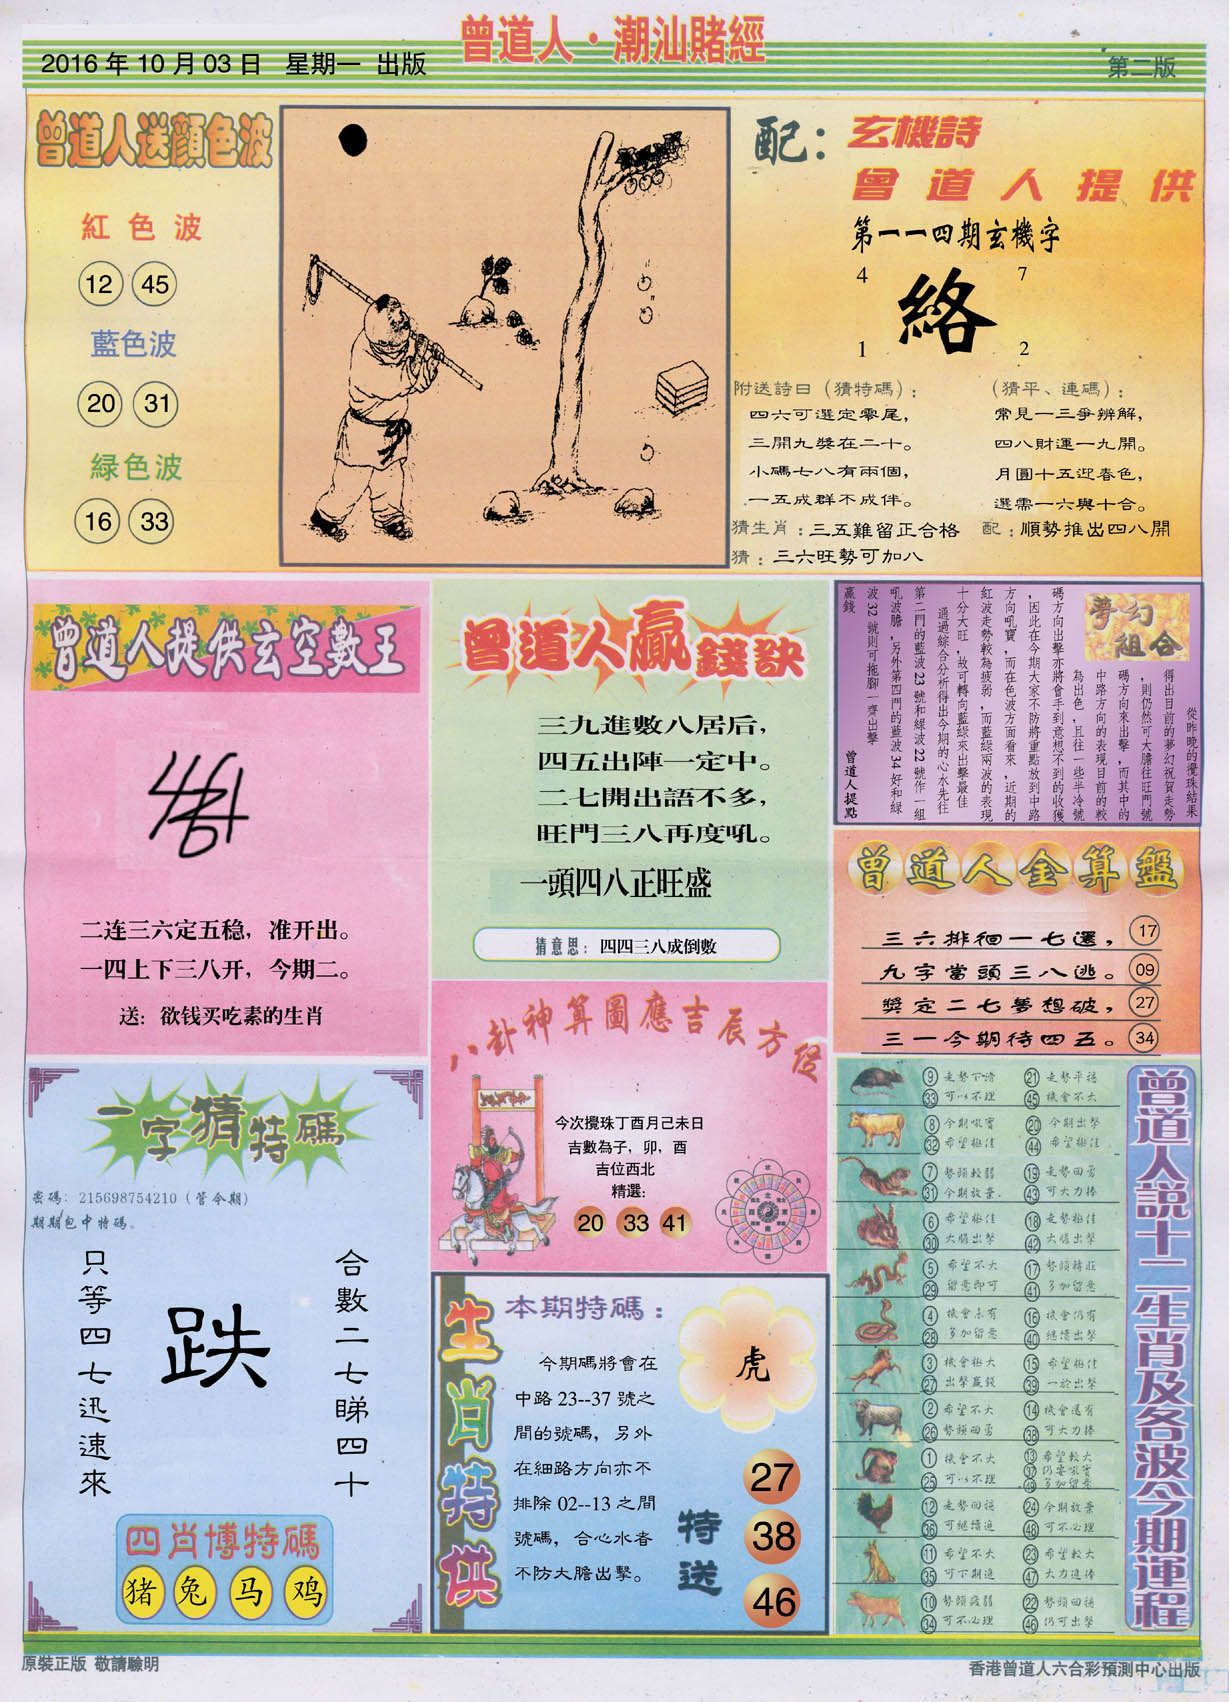 曾道人·潮汕賭經
2016 年 10 月 03 日 星期一 出版
第二版
曾道人送顏色波
紅色波
12 45
藍色波
20 31
緑色波
16 33
配：玄機詩
曾道人提供
第一一四期玄機字
4 7
絡
1 2
附送詩曰（猜特碼）：
四六可選定零尾，
三開九獎在二十。
小碼七八有兩個，
一五成群不成伴。
（猜平、連碼）：
常見一三爭辨解，
四八財運一九開。
月圓十五迎春色，
選需一六與十合。
猜生肖：三五難留正合格
配：順勢推出四八開
猜：三六旺勢可加八
曾道人提供玄空數王
二连三六定五稳，准开出。
一四上下三八开，今期二。
送：欲钱买吃素的生肖
曾道人贏錢訣
三九進數八居后，
四五出陣一定中。
二七開出語不多，
旺門三八再度吼。
一頭四八正旺盛
猜意思：四四三八成倒數
夢幻組合
從昨晚的攪珠結果
得出目前的夢幻祝賀走勢
，則仍然可大膽往旺門號
碼方向來出擊，而其中的
中路方向的表現目前的較
為出色，且往一些半冷號
碼方向出擊亦將會手到意想不到的收獲
，因此在今期大家不防將重點放到中路
方向吼寶，而在色波方面看來，近期的
紅波走勢較為疲弱，而藍綠兩波的表現
十分大旺，故可轉向藍綠來出擊最佳
通過綜合分析得出今期的心水先往
第二門的藍波 23 號和綠波 22 號作一組
吼波膽，另外第四門的藍波 34 好和綠
波 32 號則可拖腳一齊出擊
贏錢
曾道人提點
曾道人金算盤
三六排徊一七選， 17
九字當頭三八逃。 09
獎定二七夢想破， 27
三一今期待四五。 34
八卦神算圖應吉辰方位
今次攪珠丁酉月己未日
吉數為子，卯，酉
吉位西北
精選：
20 33 41
一字猜特碼
密碼：215698754210（管今期）
期期包中特碼。
合數二七睇四十
跌
只等四七迅速來
四肖博特碼
猪 兔 马 鸡
生肖特供
本期特碼：
今期碼將會在
中路 23--37 號之
間的號碼，另外
在細路方向亦不
排除 02--13 之間
號碼，合心水者
不防大膽出擊。
虎
特送
27
38
46
曾道人說十二生肖及各波今期運程
⑨ 走勢下滑 ㉑ 走勢平穩
㉝ 可以不理 ㊺ 機會不大
⑧ 今期吸寶 ⑳ 今期出擊
㉜ 希望極佳 ㊹ 希望極佳
⑦ 勢頭較弱 ⑲ 走勢回勇
㉛ 今期放棄 ㊸ 可大力捧
⑥ 希望極佳 ⑱ 走勢極佳
㉚ 大膽出擊 ㊷ 大膽出擊
⑤ 希望不大 ⑰ 勢頭轉旺
㉙ 留意即可 ㊶ 多加留意
④ 機會未有 ⑯ 機會仍有
㉘ 多加留意 ㊵ 繼續出擊
③ 機會極大 ⑮ 希望極佳
㉗ 出擊贏錢 ㊴ 一於出擊
② 希望不大 ⑭ 機會還有
㉖ 勢頭回勇 ㊳ 可大力捧
① 機會不大 ⑬ 希望較大
㉕ 可以不理 ㊲ 仍要吸寶
㊾ 多加留意
⑫ 走勢回穩 ㉔ 今期放棄
㊱ 可繼續追 ㊽ 可不必理
⑪ 希望不大 ㉓ 希望較大
㉟ 可下期追 ㊼ 大力追捧
⑩ 勢頭疲弱 ㉒ 勢頭回穩
㉞ 可不必理 ㊻ 仍可出擊
原裝正版 敬請驗明
香港曾道人六合彩預測中心出版